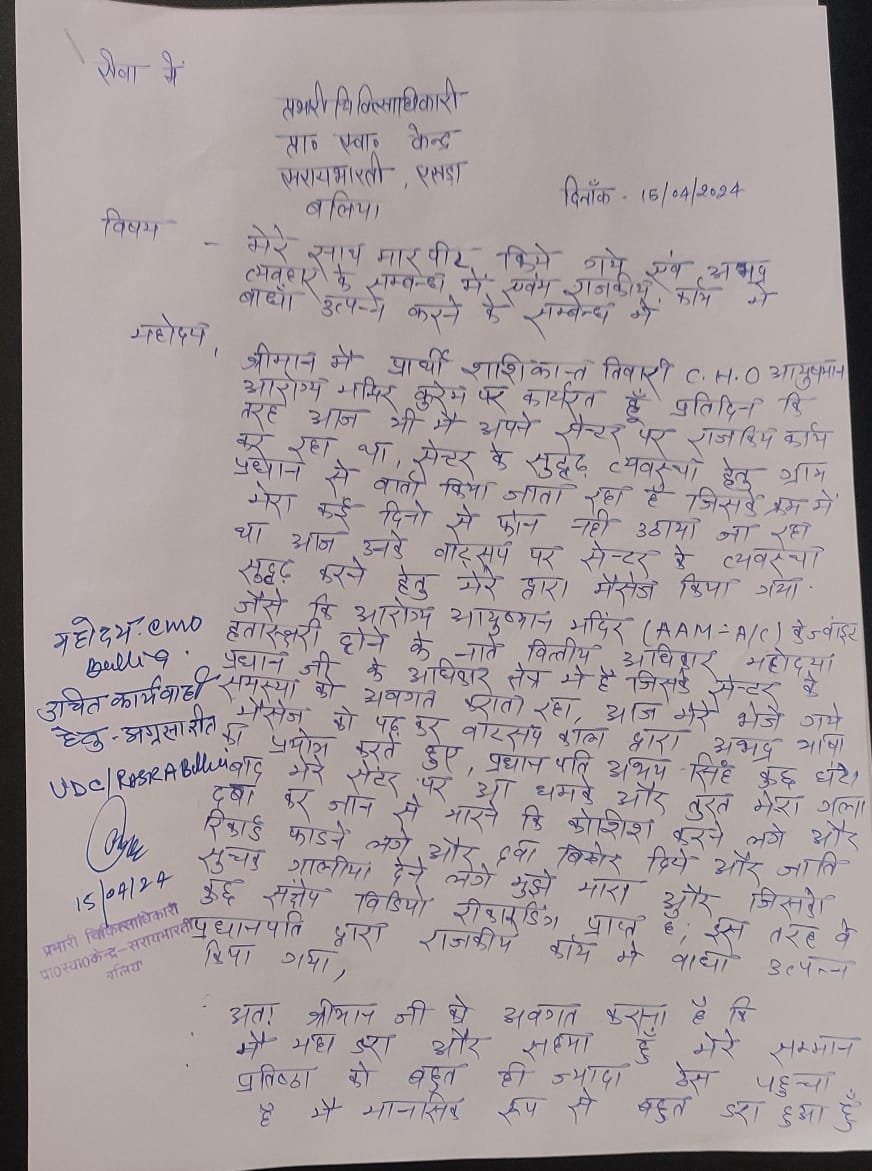 सेवा में
प्रभारी चिकित्साधिकारी
प्रा० स्वा० केन्द्र
सरायभारती, रसड़ा
बलिया
दिनाँक - 15/04/2024
विषय - मेरे साथ मारपीट किये गये एवं अभद्र
व्यवहार के सम्बन्ध में एवंम राजकीय कार्य में
बाधा उत्पन्न करने के सम्बन्ध में
महोदय,
श्रीमान मै प्रार्थी शशिकान्त तिवारी C.H.O आयुषमान
आरोग्य मन्दिर कुरेम पर कार्यरत हूँ प्रतिदिन कि
तरह आज भी मै अपने सेन्टर पर राजकिय कार्य
कर रहा था, सेन्टर के सुद्दढ़ व्यवस्था हेतु ग्राम
प्रधान से वार्ता किया जाता रहा है जिसके क्रम में
मेरा कई दिनो से फोन नही उठाया जा रहा
था आज उनके वाट्सप पर सेन्टर के व्यवस्था
सुद्दढ़ करने हेतु मेरे द्वारा मैसेज किया गया.
जैसे कि आरोग्य आयुष्मान मंदिर (AAM-A/C) के ज्वांइट
हतास्क्षरी होने के नाते वित्तीय अधिकार महोदया
प्रधान जी के अधिकार क्षेत्र मे है जिसके सेन्टर के
समस्या को अवगत कराता रहा, आज मेरे भेजे गये
मैसेज को पढ़ कर वाटसप काल द्वारा अभद्र भाषा
का प्रयोग करते हुए, प्रधान पति अभय सिंह कुछ घंटा
बाद मेरे सेंटर पर आ धमके और तुरत मेरा गला
दबा कर जान से मारने कि कोशिश करने लगे और
रिकार्ड फाडने लगे और दवा बिखेर दिये और जाति
सुचक गालीया देने लगे मुझे मारा और जिसका
कुछ संक्षेप विडियो रीकारडिंग प्राप्त है; इस तरह के
प्रधानपति द्वारा राजकीय कार्य मे वाधा उत्पन्न
किया गया,
अतः श्रीमान जी को अवगत कराना है कि
मै यहा डरा और सहमा हूँ मेरे सम्मान
प्रतिष्ठा को बहुत ही ज्यादा ठेस पहुन्चा
है मै मानसिक रूप से बहुत डरा हुआ हूँ
महोदय CMO
Ballia
उचित कार्यवाही
हेतु - अग्रसारीत
UDC/RASRA Ballia
15/04/24
प्रभारी चिकित्साधिकारी
प्रा०स्वा०केन्द्र-सरायभारती
बलिया